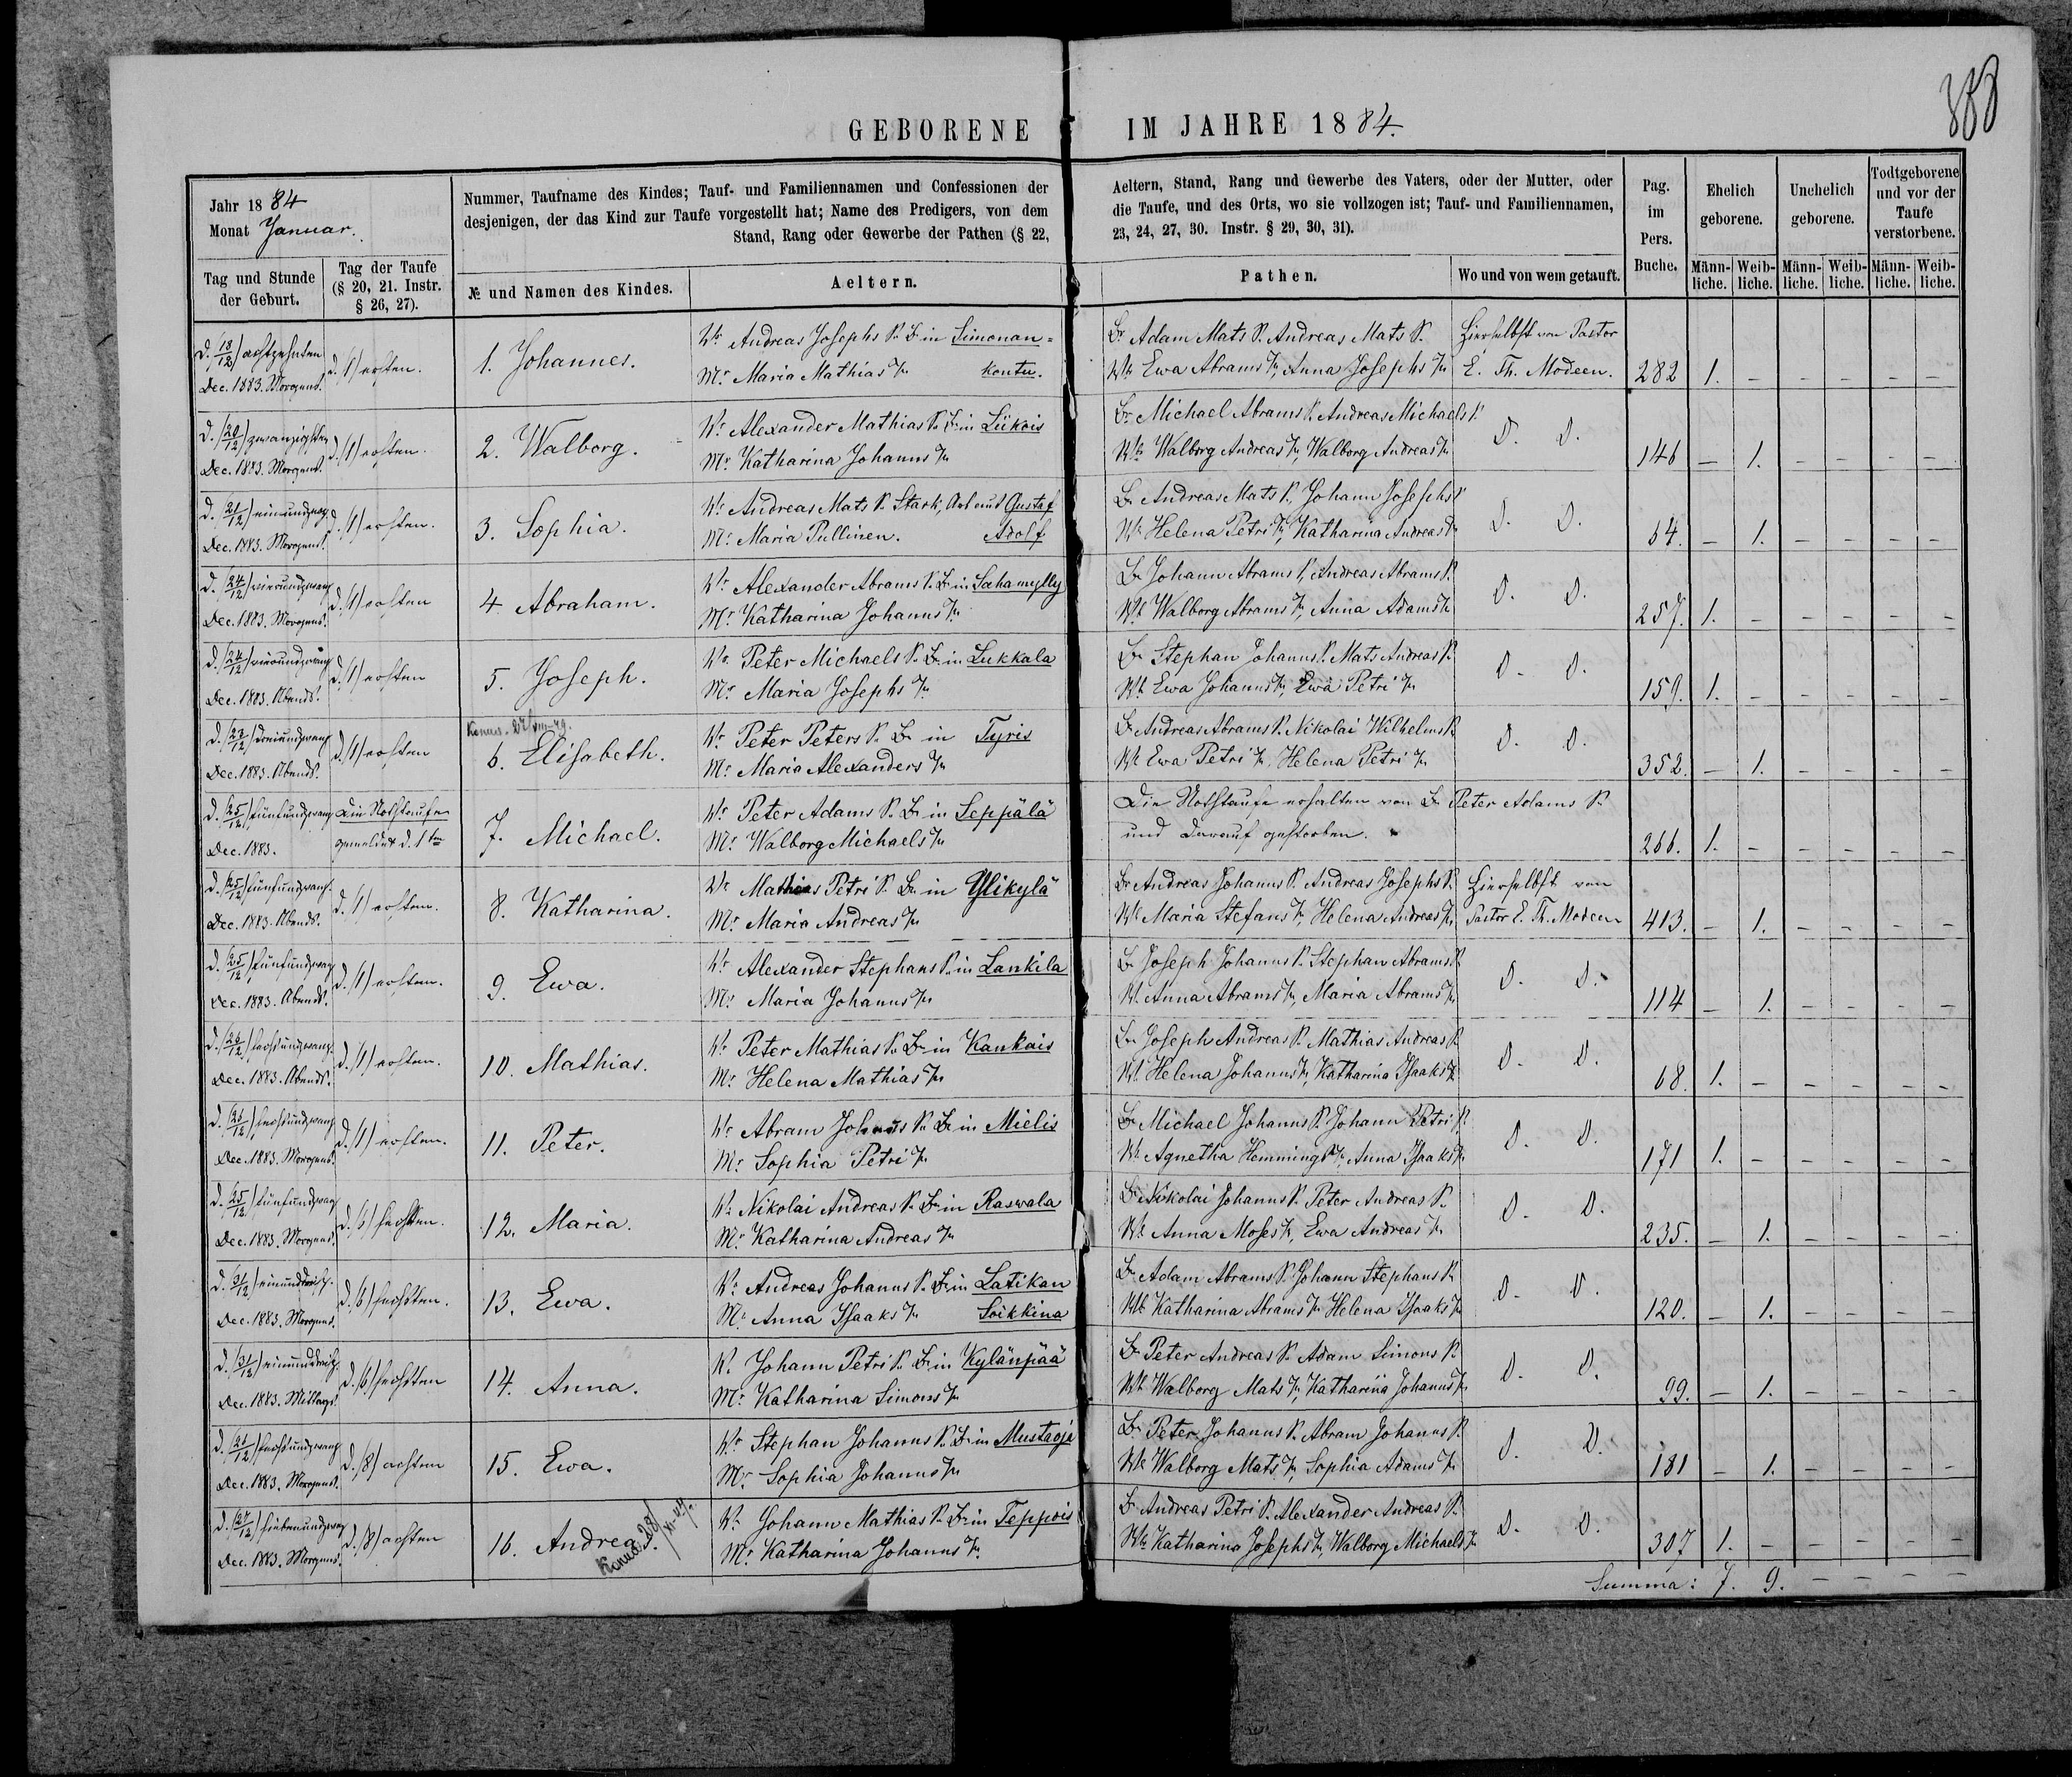 388
GEBORENE IM JAHRE 1884.
Jahr 1884
Monat Januar.
Nummer, Taufname des Kindes; Tauf- und Familiennamen und Confessionen der
desjenigen, der das Kind zur Taufe vorgestellt hat; Name des Predigers, von dem
Stand, Rang oder Gewerbe der Pathen (§ 22,
Aeltern, Stand, Rang und Gewerbe des Vaters, oder der Mutter, oder
die Taufe, und des Orts, wo sie vollzogen ist; Tauf- und Familiennamen,
23, 24, 27, 30. Instr. § 29, 30, 31).
Pag.
im
Pers.
Buche.
Ehelich
geborene.
Unehelich
geborene.
Todtgeborene
und vor der
Taufe
verstorbene.
Tag und Stunde
der Geburt.
Tag der Taufe
(§ 20, 21. Instr.
§ 26, 27).
№ und Namen des Kindes.
Aeltern.
Pathen.
Wo und von wem getauft.
Männ-
liche.
Weib-
liche.
Männ-
liche.
Weib-
liche.
Männ-
liche.
Weib-
liche.
d. (18/12) achtzehnten d. (1) ersten. 1. Johannes. Vr Andreas Josephs S. Br in Simonan= Br Adam Mats S. Andreas Mats S. Hierselbst von Pastor
Dec. 1883. Morgens. Mr Maria Mathias Tr kontu. Wb Ewa Abrams Tr, Anna Josephs Tr E. Th. Modeen. 282 1. – – – – –
d. (20/12) zwanzigsten d. (1) ersten. 2. Walborg. Vr Alexander Mathias S. Br in Liikois Br Michael Abrams S. Andreas Michaels S. D. D.
Dec. 1883. Morgens. Mr Katharina Johanns Tr Wb Walborg Andreas Tr, Walborg Andreas Tr 146 – 1. – – – –
d. (21/12) einundzwg. d. (1) ersten. 3. Sophia. Vr Andreas Mats S. Stark, Gustaf Br Andreas Mats S. Johann Josephs S. D. D.
Dec. 1883. Morgens. Mr Maria Pullinen. Adolf Wb Helena Petri Tr, Katharina Andreas Tr 64. – 1. – – – –
d. (24/12) vierundzwanz d. (1) ersten 4. Abraham. Vr Alexander Abrams S. Br in Sahamylly Br Johann Abrams S, Andreas Abrams S. D. D.
Dec. 1883. Morgens. Mr Katharina Johanns Tr Wb Walborg Abrams Tr, Anna Adams Tr 257. 1. – – – – –
d. (24/12) vierundzwang d. (1) ersten 5. Joseph. Vr Peter Michaels S. Br in Lukkala Br Stephan Johanns S. Mats Andreas S. D. D.
Dec. 1883. Abends. Mr Maria Josephs Tr Wb Ewa Johanns Tr, Ewa Petri Tr 159. 1. – – – – –
d. (23/12) dreiundzwanz d. (1) ersten 6. Elisabeth. Vr Peter Peters S. Br in Tyris Br Andreas Abrams S. Nikolai Wilhelms S. D. D.
Dec. 1883. Abends. Mr Maria Alexanders Tr Wb Ewa Petri Tr, Helena Petri Tr 352. – 1. – – – –
d. (25/12) fünfundzwanz Die Nothtaufe 7. Michael. Vr Peter Adams S. Br in Seppälä Die Nothtaufe erhalten von Br Peter Adams S.
Dec. 1883. gemeldet d. 1ten Mr Walborg Michaels Tr und darauf gestorben. 266. 1. – – – – –
d. (25/12) fünfundzwanz. d. (1) ersten. 8. Katharina. Vr Mathias Petri S. Br in Ylikylä Br Andreas Johanns S. Andreas Josephs S. Hierselbst von
Dec. 1883. Abends. Mr Maria Andreas Tr Wb Maria Stefans Tr, Helena Andreas Tr Pastor E. Th. Modeen 413. – 1. – – – –
d. (25/12) fünfundzwanz d. (1) ersten. 9. Ewa. Vr Alexander Stephans S. in Lankila Br Joseph Johanns S. Stephan Abrams S. D. D.
Dec. 1883. Abends. Mr Maria Johanns Tr Wb Anna Abrams Tr, Maria Abrams Tr 114 – 1. – – – –
d. (26/12) sechsundzwanz. d. (1) ersten. 10. Mathias. Vr Peter Mathias S. Br in Kankais Br Joseph Andreas S. Mathias Andreas S. D. D.
Dec. 1883. Abends. Mr Helena Mathias Tr Wb Helena Johanns Tr, Katharina Isaaks Tr 68. 1. – – – – –
d. (26/12) sechsundzwanz d. (1) ersten. 11. Peter. Vr Abram Johanns S. Br in Mielis Br Michael Johanns S. Johann Petri S. D. D.
Dec. 1883. Morgens. Mr Sophia Petri Tr Wb Agnetha Hemmings Tr, Anna Isaaks Tr 171 1. – – – – –
d. (25/12) fünfundzwanz d. (6) sechsten. 12. Maria. Vr Nikolai Andreas S. Br in Raswala Br Nikolai Johanns S. Peter Andreas S. D. D.
Dec. 1883. Morgens. Mr Katharina Andreas Tr Wb Anna Moses Tr, Ewa Andreas Tr 235. – 1. – – – –
d. (31/12) einunddreisz. d. (6) sechsten. 13. Ewa. Vr Andreas Johanns S. Br in Latikan Br Adam Abrams S. Johann Stephans S. D. D.
Dec. 1883. Morgens. Mr Anna Isaaks Tr Soikkina Wb Katharina Abrams Tr Helena Isaaks Tr 120. – 1. – – – –
d. (31/12) einunddreisz. d. (6) sechsten 14. Anna. Vr Johann Petri S. Br in Kylänpää Br Peter Andreas S. Adam Simons S. D. D.
Dec. 1883. Mittags. Mr Katharina Simons Tr Wb Walborg Mats Tr, Katharina Johanns Tr 99. – 1. – – – –
d. (26/12) sechsundzwanz d. (8) achten 15. Ewa. Vr Stephan Johanns S. Br in Mustaoja Br Peter Johanns S. Abram Johanns S. D. D.
Dec. 1883. Morgens. Mr Sophia Johanns Tr Wb Walborg Mats Tr, Sophia Adams Tr 181 – 1. – – – –
d. (27/12) siebenundzwg d. (8) achten 16. Andreas. Vr Johann Mathias S. Br in Teppois Br Andreas Petri S. Alexander Andreas S. D. D.
Dec. 1883. Morgens. Mr Katharina Johanns Tr. Wb Katharina Josephs Tr, Walborg Michaels Tr 307 1. – – – – –
Summa: 7. 9. – – – –